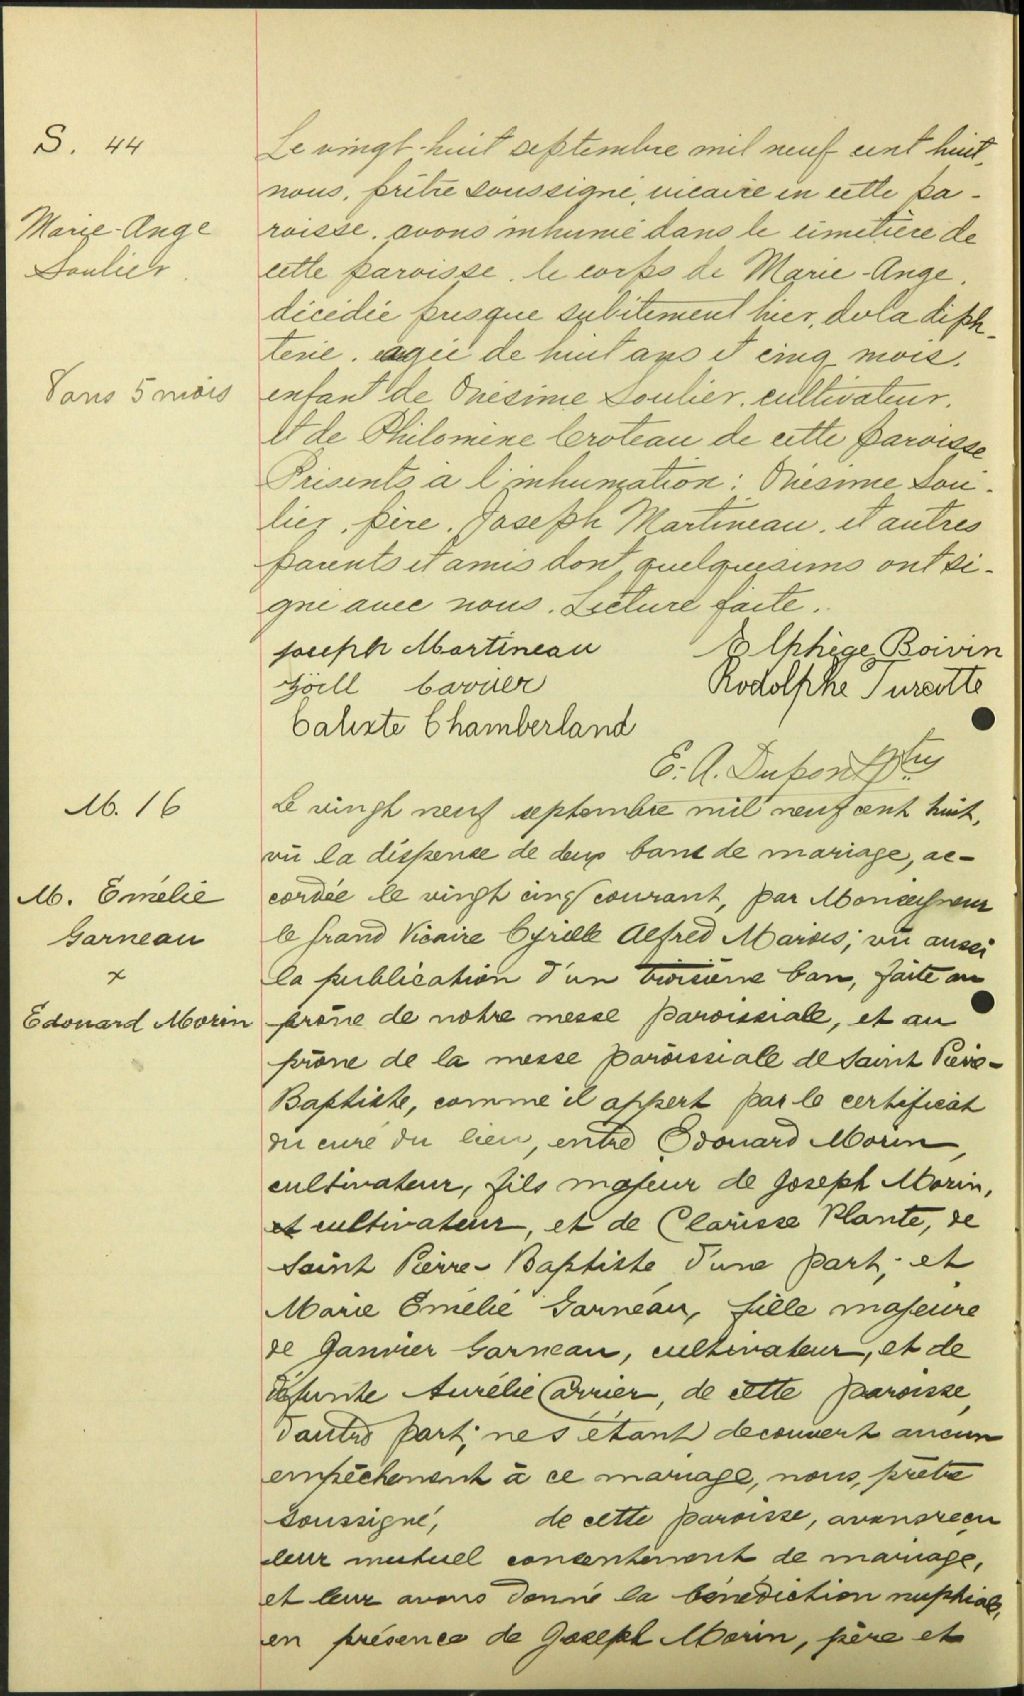 S. 44
Marie-Ange
Soulier.
8 ans 5 mois
Le vingt-huit septembre mil neuf cent huit,
nous, prêtre soussigné, vicaire en cette pa-
roisse, avons inhumé dans le cimetière de
cette paroisse, le corps de Marie-Ange,
décédée presque subitement hier, de la diph-
terie, agée de huit ans et cinq mois,
enfant de Onésime Soulier, cultivateur,
et de Philomène Croteau de cette paroisse
Présents à l'inhumation: Onésime Sou-
lier, père, Joseph Martineau, et autres
parents et amis dont quelquesuns ont si-
gné avec nous. Lecture faite.
Joseph Martineau Elphège Boivin
Joëll Carrier Rodolphe Turcotte
Calixte Chamberland
E.-A. Dupont Ptre
M. 16
M. Emélie
Garneau
x
Edouard Morin
Le vingt neuf septembre mil neuf cent huit,
vû la dispense de deux bans de mariage, ac-
cordée le vingt cinq courant, par Monseigneur
le Grand Vicaire Cyrille Alfred Marois; vû aussi
la publication d'un troisième ban, faite au
prône de notre messe paroissiale, et au
prône de la messe paroissiale de Saint Pierre-
Baptiste, comme il appert par le certificat
du curé du lieu, entre Edouard Morin,
cultivateur, fils majeur de Joseph Morin,
et cultivateur, et de Clarisse Plante, de
Saint Pierre-Baptiste, d'une part; et
Marie Emélie Garneau, fille majeure
de Janvier Garneau, cultivateur, et de
défunte Aurélie Carrier, de cette paroisse,
d'autre part; ne s'étant decouvert aucun
empêchement à ce mariage, nous, prêtre
soussigné, de cette paroisse, avons reçu
leur mutuel consentement de mariage,
et leur avons donné la bénédiction nuptiale,
en présence de Joseph Morin, père et